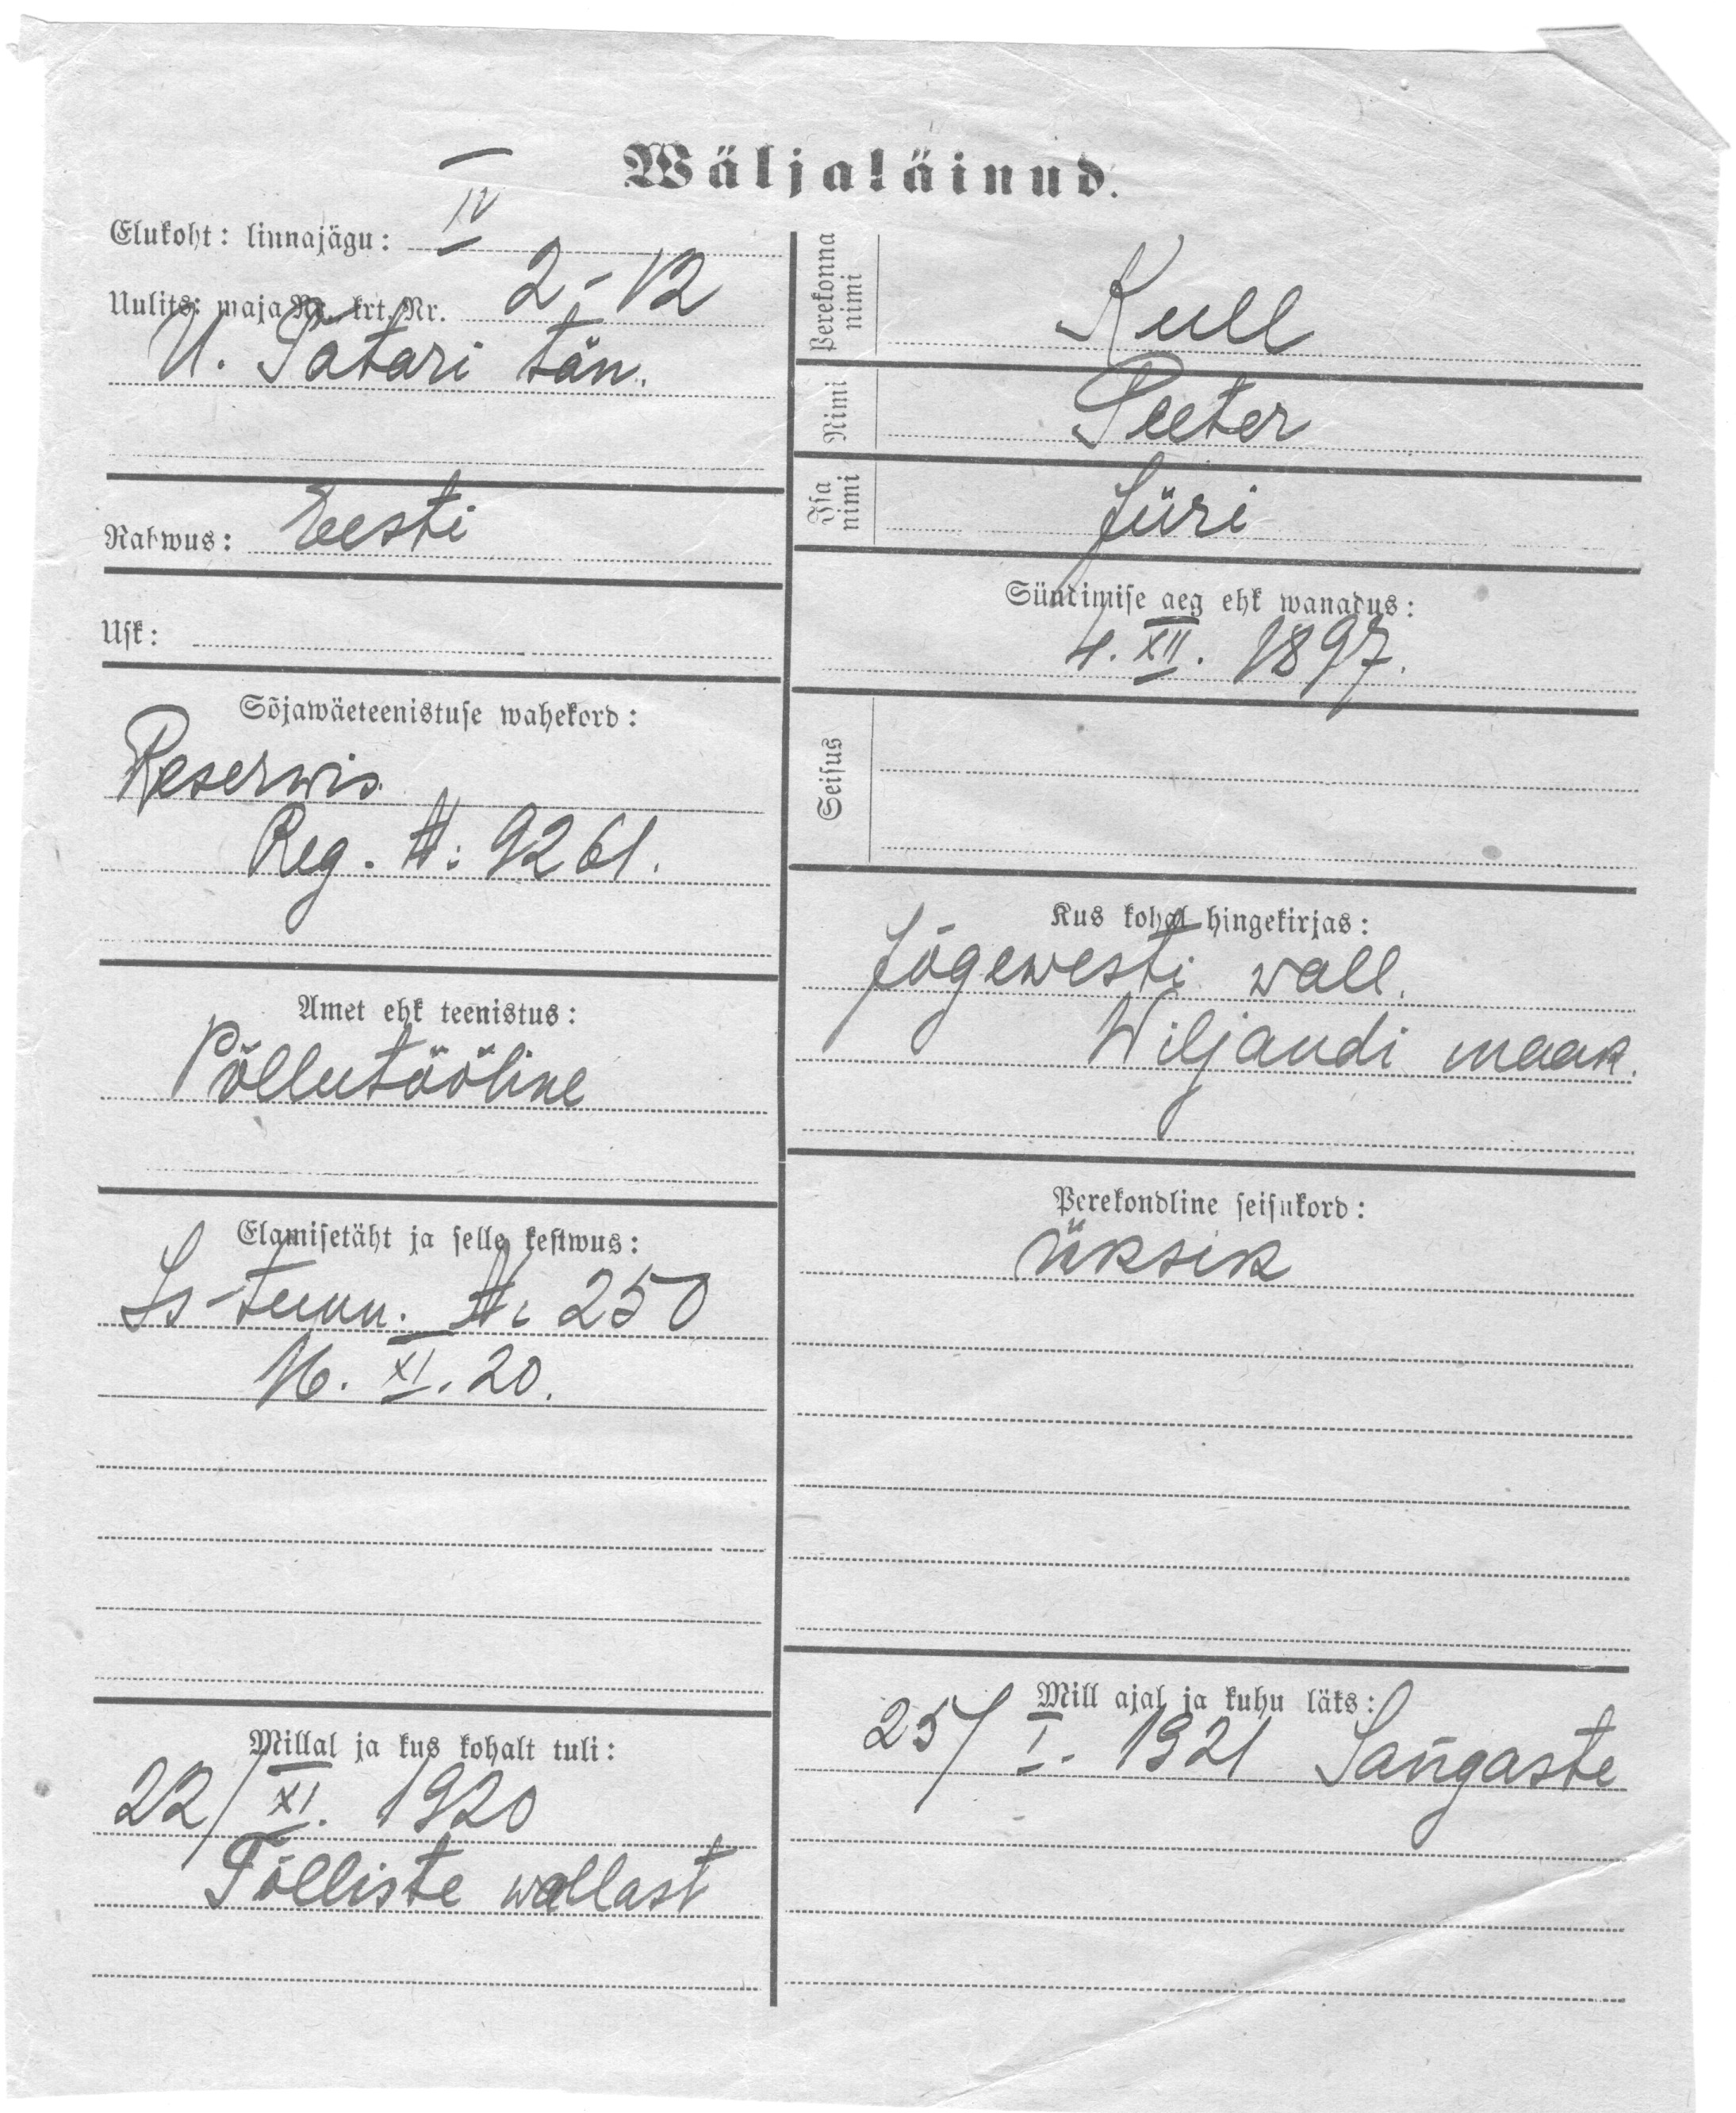 Wäljaläinud.
Elukoht: linnajägu: IV
Uulits: maja Nr. krt. Nr. 2-12
U. Tatari tän.
Rahwus: Eesti
Usk:
Sõjawäeteenistuse wahekord:
Reserwis.
Reg. №: 9261.
Amet ehk teenistus:
Põllutööline
Elamisetäht ja selle kestwus:
Is-tunn. №: 250
16. XI. 20.
Millal ja kus kohalt tuli:
22/XI. 1920
Tõlliste wallast
Perekonna nimi
Kull
Nimi
Peeter
Isa nimi
Jüri
Sündimise aeg ehk wanadus:
4. XII. 1897.
Seisus
Kus kohal hingekirjas:
Jõgewesti wall.
Wiljandi maak.
Perekondline seisukord:
üksik
Mill ajal ja kuhu läks:
25/I. 1921 Sangaste